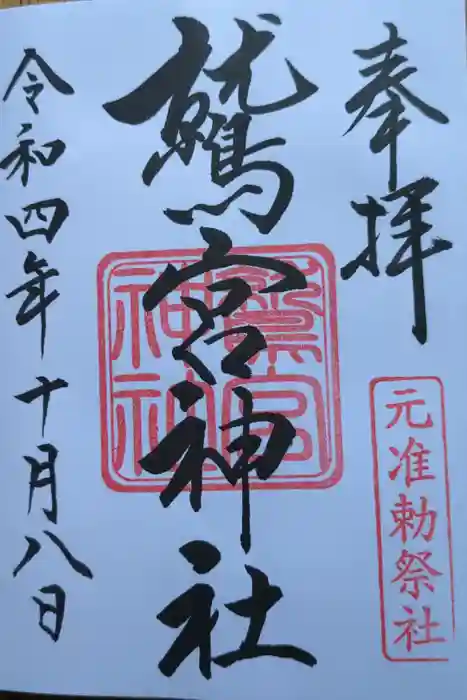 奉拝
元准勅祭社
鷲宮神社
鷲宮神社
令和四年十月八日